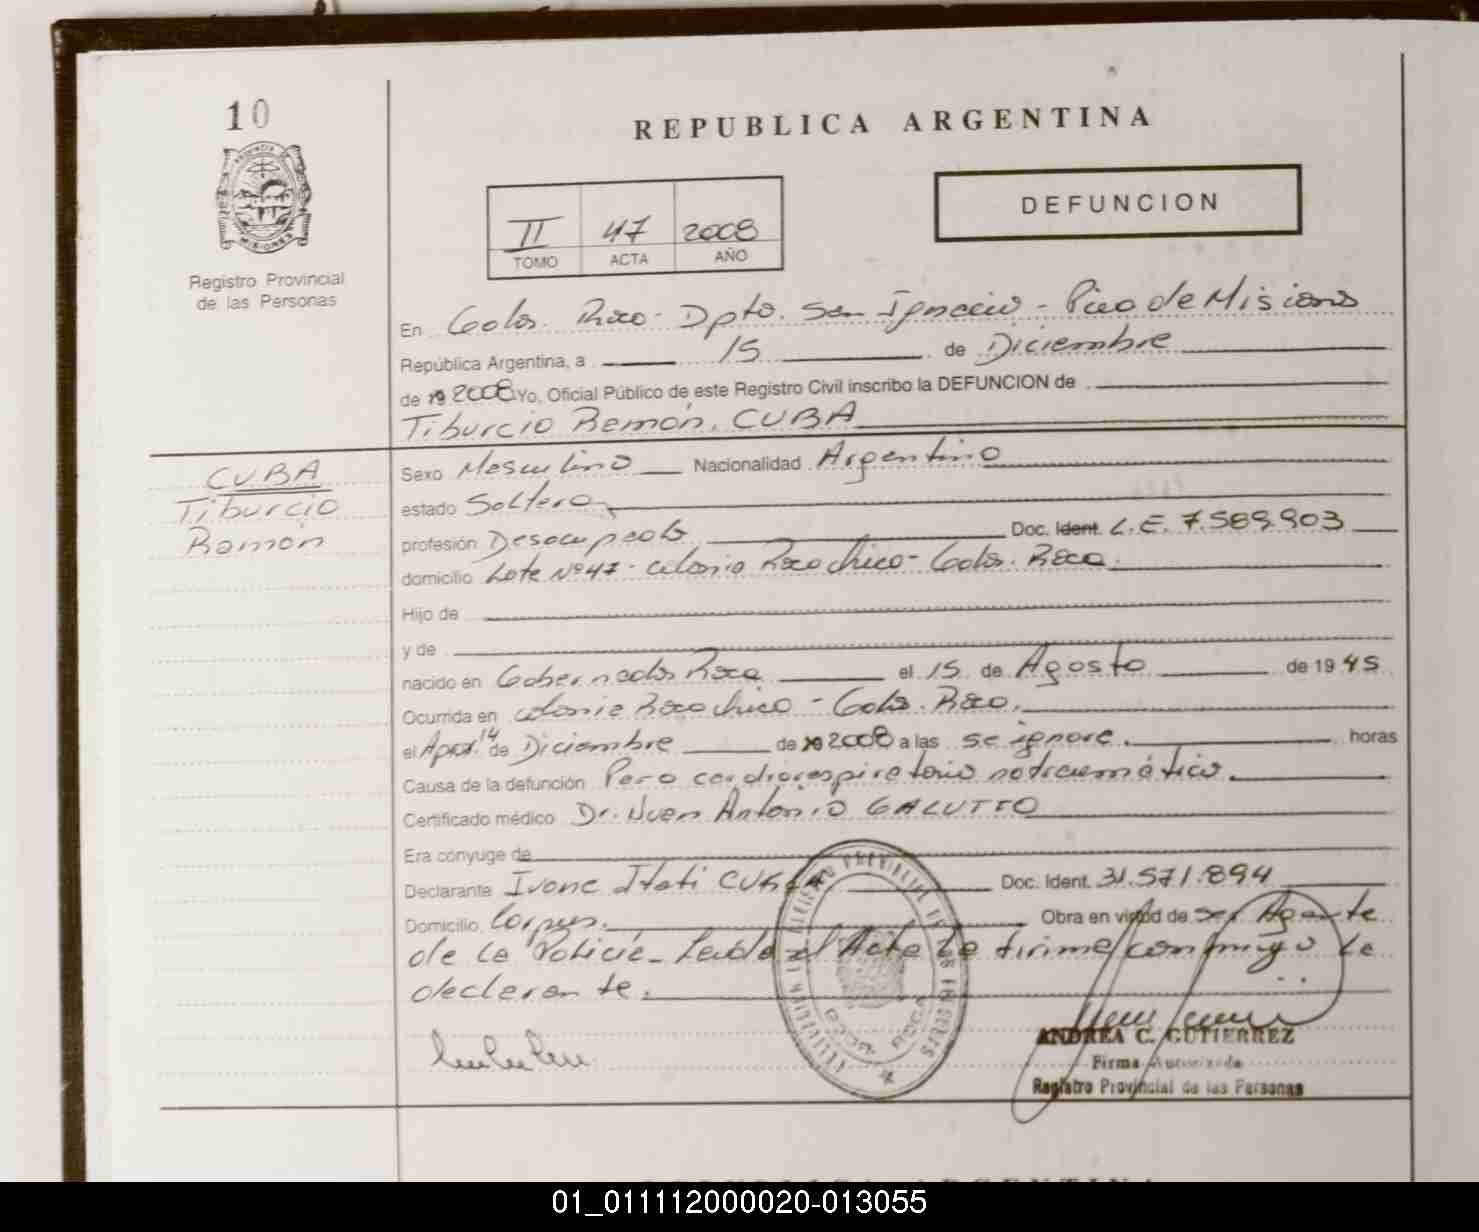 10
REPUBLICA ARGENTINA
DEFUNCION
II 47 2008
TOMO ACTA AÑO
PROVINCIA
MISIONES
Registro Provincial
de las Personas
En Gdor. Roca - Dpto. San Ignacio - Pcia de Misiones
República Argentina, a 15 de Diciembre
de 19 2008 Yo, Oficial Público de este Registro Civil inscribo la DEFUNCION de
Tiburcio Ramón, CUBA
CUBA
Tiburcio
Ramón
Sexo Masculino Nacionalidad Argentino
estado Soltero
profesión Desocupado Doc. Ident. L.E. 7.589.903
domicilio Lote Nº 47 - Colonia Roca Chico - Gdor. Roca.
Hijo de
y de
nacido en Gobernador Roca el 15 de Agosto de 19 45
Ocurrida en Colonia Roca Chico - Gdor. Roca.
el Aprox. 14 de Diciembre de 19 2008 a las se ignora. horas
Causa de la defunción Paro cardiorespiratorio no traumático.
Certificado médico Dr. Juan Antonio GALUTTO
Era cónyuge de
Declarante Ivone Itatí CUBA Doc. Ident. 31.571.894
Domicilio Corpus. Obra en virtud de ser Agente
de la Policía - Leída el Acta la firma conmigo la
declarante.
GDOR ROCA
ANDREA C. GUTIERREZ
Firma Autorizada
Registro Provincial de las Personas
01_011112000020-013055